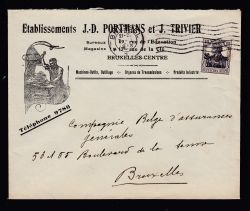 Etablissements J.-D. PORTMANS et J. TRIVIER
Bureaux
Magasins
BRUXELLES-CENTRE
Machines-Outils, Outillage Organes de Transmissions Produits Industriels
Téléphone 9788
Compagnie Belge d'assurances
générales
53 à 55 Boulevard de la Senne
Bruxelles